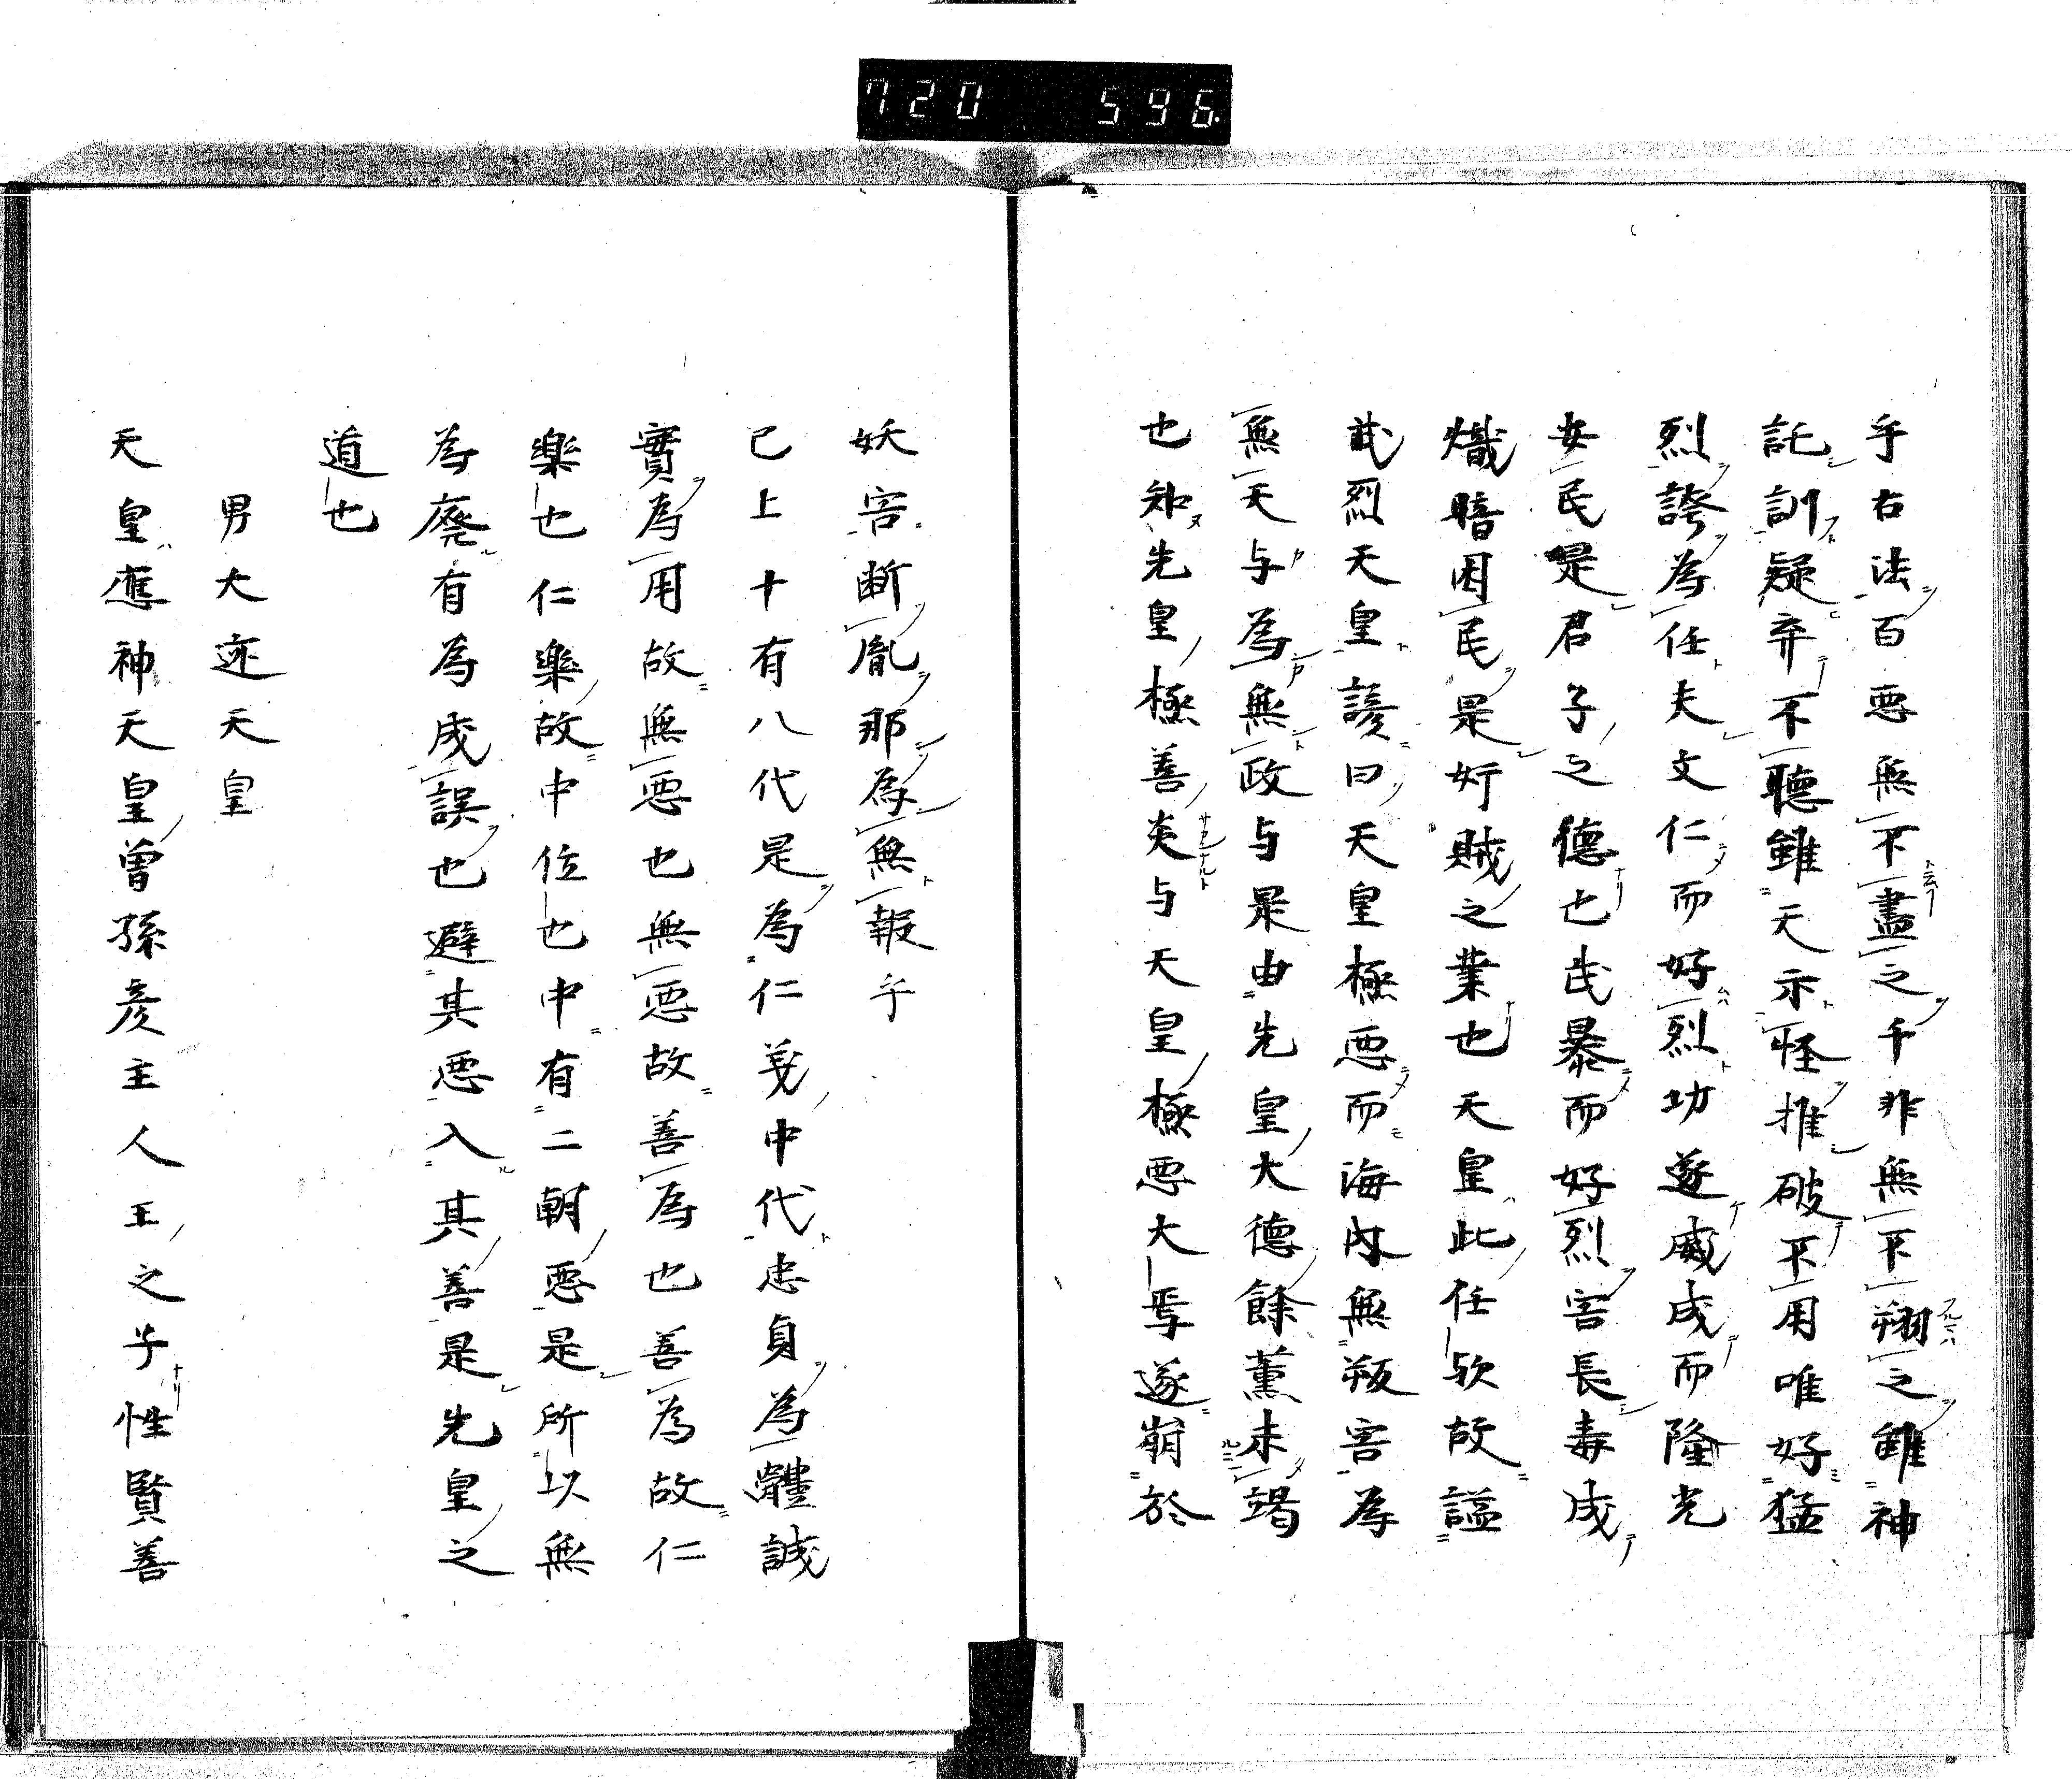 720 596
乎右法百悪無不盡之千非無不翔之雖神
託訓疑弃不聴雖天示怪推破不用唯好猛
烈誇為任夫文仁而好烈功遂威成而隆光
安民是君子之德也武暴而好烈害長毒成
熾暗困民是奸賊之業也天皇此任欤故謚
武烈天皇諺曰天皇極悪而海内無叛害為
無天与為無政与是由先皇大德餘薫未竭
也知先皇極善炎与天皇極悪大焉遂崩於
妖害断胤那為無報乎
已上十有八代是為仁義中代忠貞為體誠
實為用故無悪也無悪故善為也善為故仁
樂也仁樂故中位也中有二朝悪是所以無
為廃有為成誤也避其悪入其善是先皇之
道也
男大迹天皇
天皇應神天皇曽孫彦主人王之子性賢善